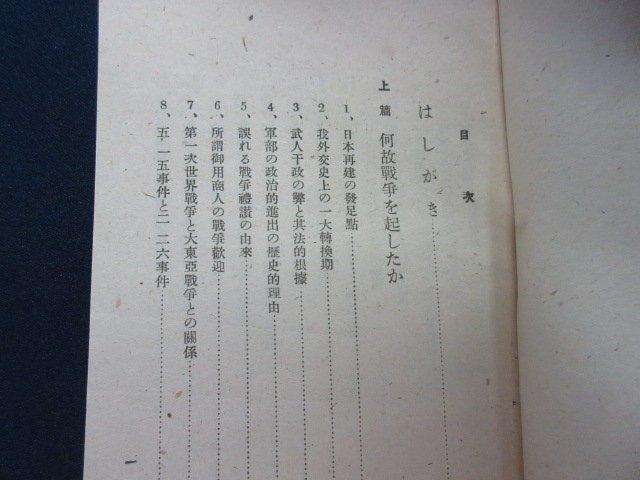 目次
はしがき
上篇 何故戰爭を起したか
1、日本再建の發足點
2、我外交史上の一大轉換期
3、武人干政の弊と其法的根據
4、軍部の政治的進出の歷史的理由
5、誤れる戰爭禮讃の由來
6、所謂御用商人の戰爭歡迎
7、第一次世界戰爭と大東亞戰爭との關係
8、五・一五事件と二・二六事件
一